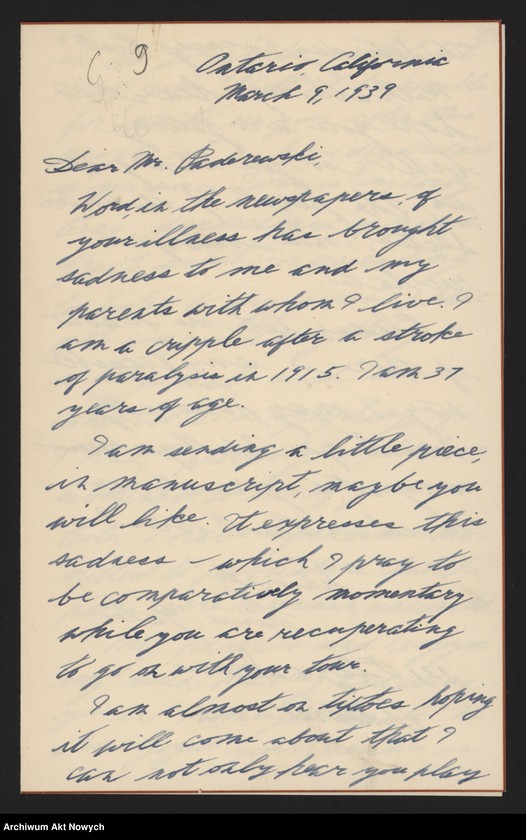 9
Ontario, California
March 9, 1939
Dear Mr. Paderewski,
Word, in the newspapers, of
your illness has brought
sadness to me and my
parents with whom I live. I
am a cripple after a stroke
of paralysis in 1915. I am 37
years of age.
I am sending a little piece,
in manuscript, maybe you
will like. It expresses this
sadness – which I pray to
be comparatively momentary
while you are recuperating
to go on with your tour.
I am almost on tiptoes hoping
it will come about that I
can not only hear you play
Archiwum Akt Nowych